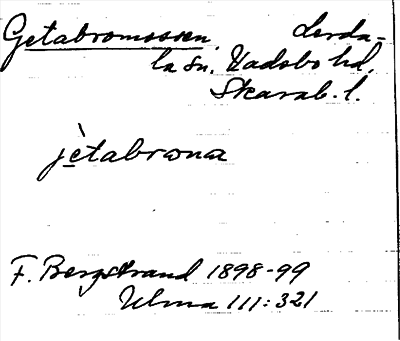 Getabromossen. Lerda-
la sn, Vadsbo hd,
Skarab. l.
jètabrωna
F. Bergstrand 1898-99
Ulma 111:321